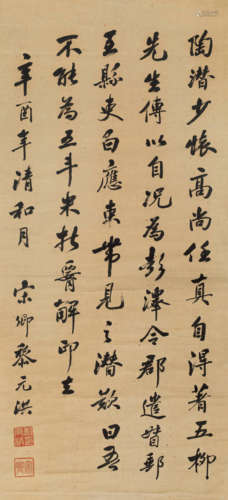 陶潜少懐高尚任真自得著五柳
先生傳以自況為彭澤令郡遣督郵
至縣吏白應束帶見之潜歎曰吾
不能為五斗米折腰解印去
辛酉年清和月 宋卿黎元洪